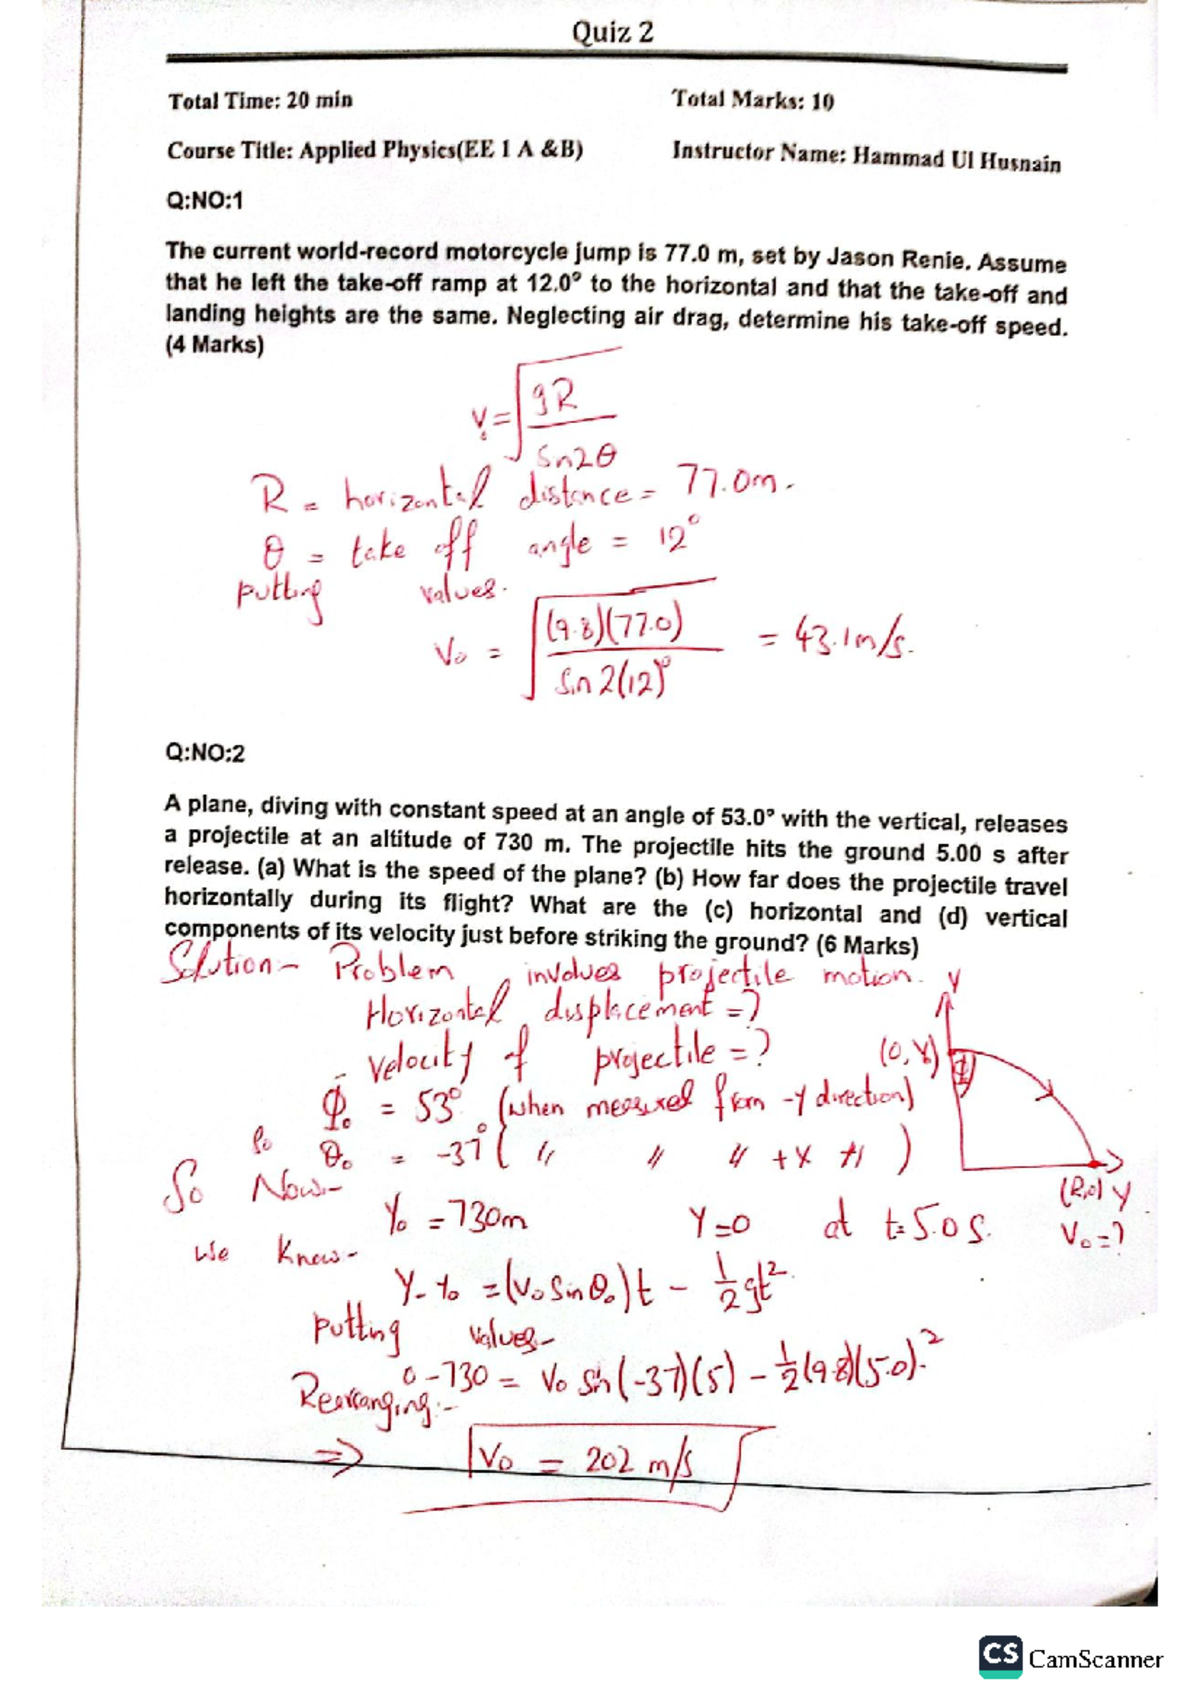 Quiz 2
Total Time: 20 min Total Marks: 10
Course Title: Applied Physics(EE 1 A &B) Instructor Name: Hammad Ul Husnain
Q:NO:1
The current world-record motorcycle jump is 77.0 m, set by Jason Renie. Assume
that he left the take-off ramp at 12.0º to the horizontal and that the take-off and
landing heights are the same. Neglecting air drag, determine his take-off speed.
(4 Marks)
V₀ = √(gR / Sin2θ)
R = horizontal distance = 77.0m.
θ = take off angle = 12°
putting values.
V₀ = √((9.8)(77.0) / Sin 2(12)°) = 43.1m/s.
Q:NO:2
A plane, diving with constant speed at an angle of 53.0º with the vertical, releases
a projectile at an altitude of 730 m. The projectile hits the ground 5.00 s after
release. (a) What is the speed of the plane? (b) How far does the projectile travel
horizontally during its flight? What are the (c) horizontal and (d) vertical
components of its velocity just before striking the ground? (6 Marks)
Solution:- Problem involves projectile motion.
Horizontal displacement = ?
velocity of projectile = ?
Φ₀ = 53° (when measured from -Y direction)
So θ₀ = -37° ( 〃 〃 〃 +X 〃 )
So Now:-
Y₀ = 730m Y=0 at t= 5.0 s.
we know:-
Y-Y₀ = (V₀ Sin θ₀)t - 1/2 gt².
putting values:-
0-730 = V₀ Sin(-37)(5) - 1/2 (9.8)(5.0)².
Rearranging:-
⇒ V₀ = 202 m/s
Y
(0, Y₀)
Φ
(R,0) Y
V₀=?
CS CamScanner